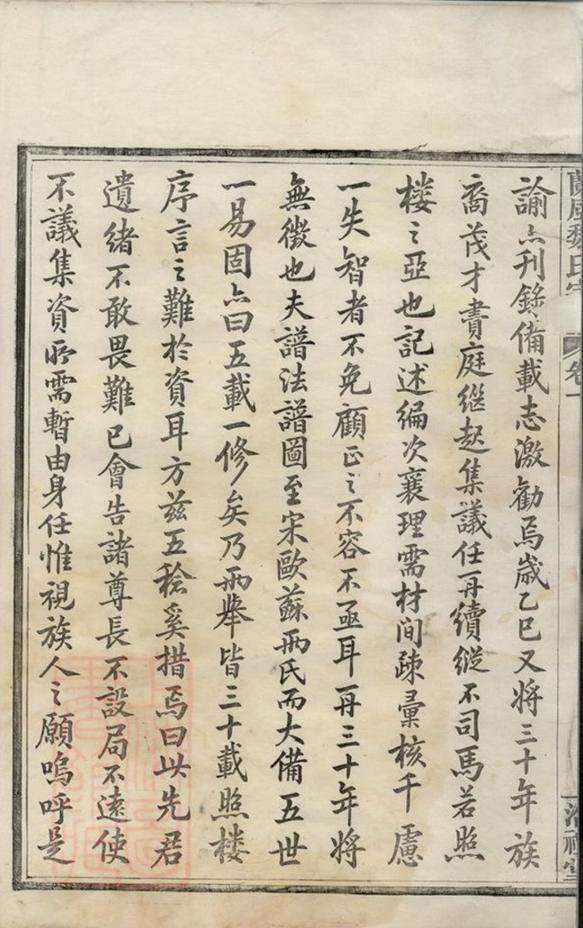 諭亦刋錄備載志激勸焉歲乙巳又將三十年族
裔茂才賣庭繼起集議任再續縱不司馬若照
楼之亞也記述編次襄理需材间疎彙核千慮
一失智者不免顧正之不容不亟耳再三十年將
無徵也夫譜法譜圖至宋歐蘇兩氏而大備五世
一易固亦曰五載一修矣乃兩舉皆三十載照楼
序言之難於資耳方兹五稔奚措焉曰此先君
遺緒不敢畏難已會告諸尊長不設局不遠使
不議集資所需暫由身任惟視族人之願嗚呼是
氏
卷一